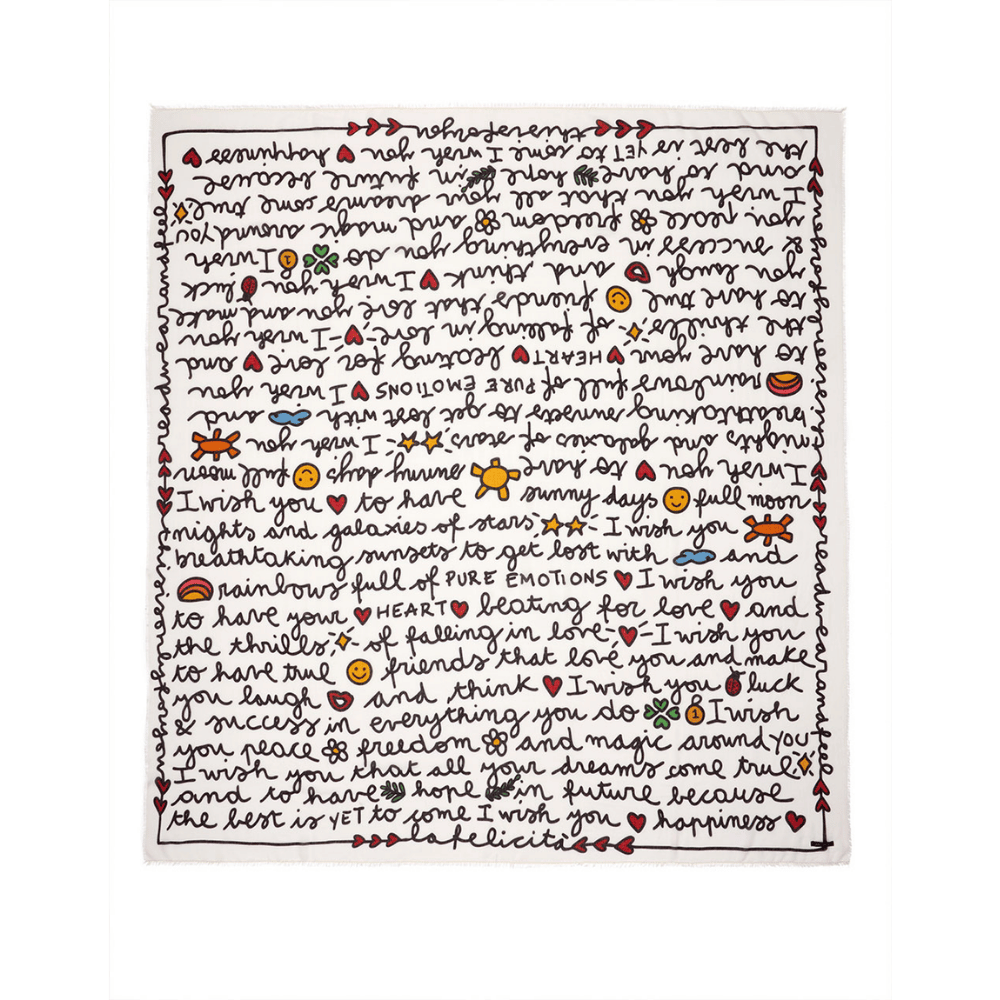 I wish you to have sunny days full moon
nights and galaxies of stars I wish you
breathtaking sunsets to get lost with and
rainbows full of PURE EMOTIONS I wish you
to have your HEART beating for love and
the thrills of falling in love I wish you
to have true friends that love you and make
you laugh and think I wish you luck
& success in everything you do 1 I wish
you peace freedom and magic around you
I wish you that all your dreams come true
and to have hope in future because
the best is YET to come I wish you happiness
I wish you to have sunny days full moon
nights and galaxies of stars - I wish you
breathtaking sunsets to get lost with and
rainbows full of PURE EMOTIONS I wish you
to have your HEART beating for love and
the thrills of falling in love - I wish you
to have true friends that love you and make
you laugh and think I wish you luck
& success in everything you do 1 I wish
you peace freedom and magic around you
I wish you that all your dreams come true
and to have hope in future because
the best is YET to come I wish you happiness
la felicità
read wear and feel
read wear and feel